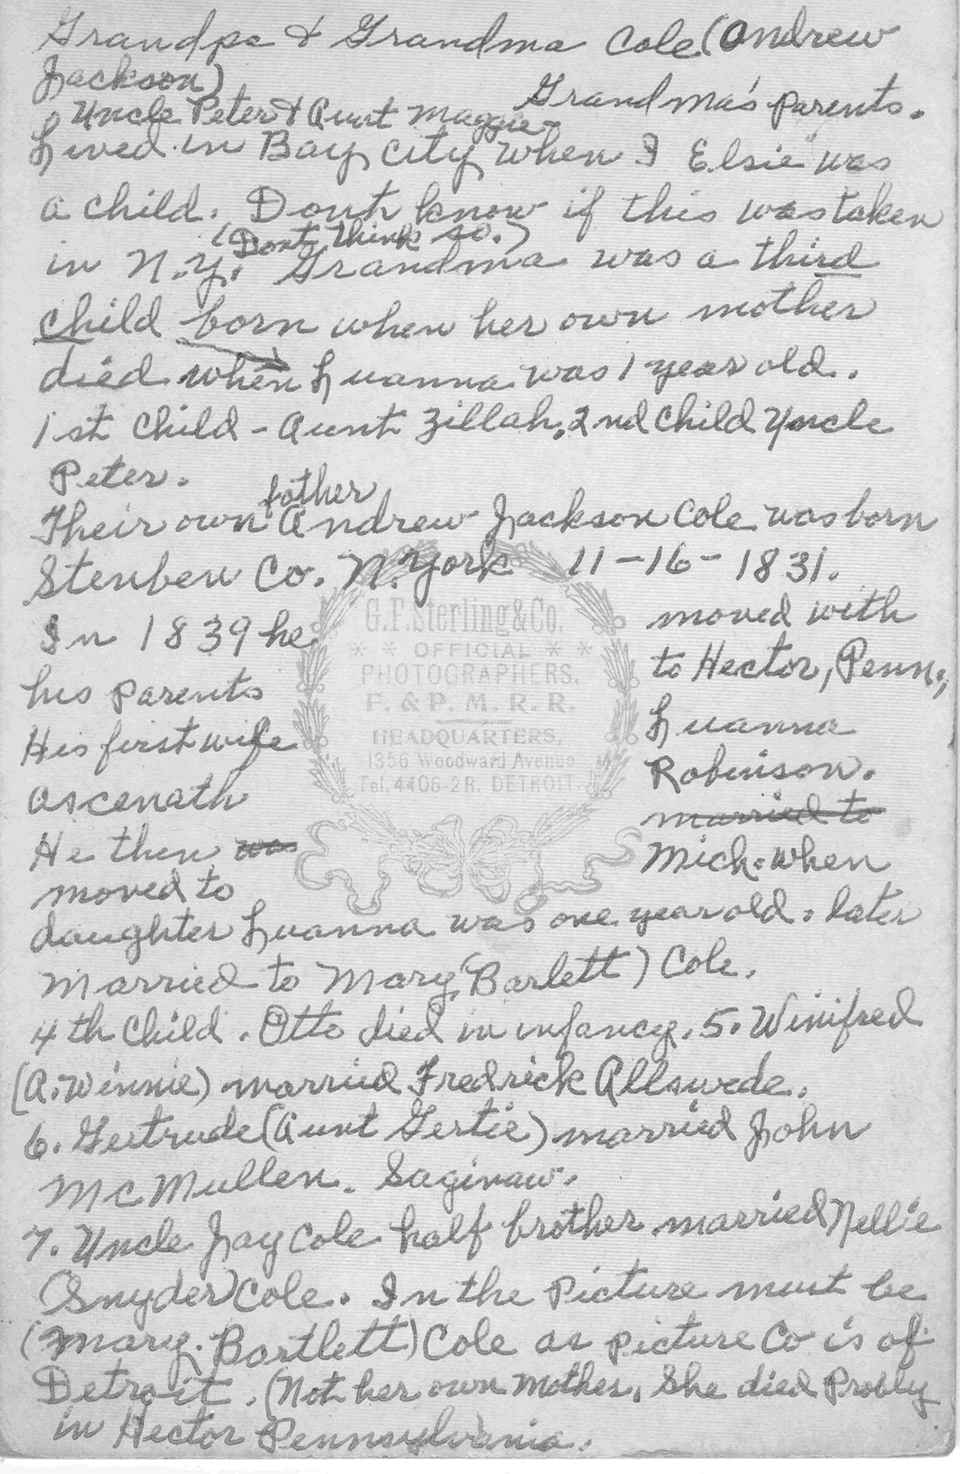 Grandpa & Grandma Cole (Andrew
Jackson)
Grandma's parents.
Uncle Peter & Aunt Maggie
Lived in Bay City when I Elsie was
a child. Don't know if this was taken
(Don't think so.)
in N.Y. Grandma was a third
child born when her own mother
died when Luanna was 1 year old.
1st Child - Aunt Zillah, 2nd Child Uncle
Peter.
father
Their own Andrew Jackson Cole was born
Steuben Co. N. York 11-16-1831.
In 1839 he moved with
his parents to Hector, Penn.,
His first wife Luanna
Ascenath Robinson.
He then was married to
moved to Mich. when
daughter Luanna was one year old. later
married to Mary (Barlett) Cole.
4th Child. Otto died in infancy. 5. Winifred
(A. Winnie) married Fredrick Allswede.
6. Gertrude (Aunt Gertie) married John
McMullen. Saginaw.
7. Uncle Jay Cole half brother married Nellie
(Snyder) Cole. In the picture must be
(Mary. Bartlett) Cole as picture Co is of
Detroit. (Not her own Mother, She died Probly
in Hector Pennsylvania.
G.F. Sterling & Co.
* * OFFICIAL * *
PHOTOGRAPHERS,
F. & P. M. R. R.
HEADQUARTERS,
1356 Woodward Avenue
Tel. 4406-2R, DETROIT.